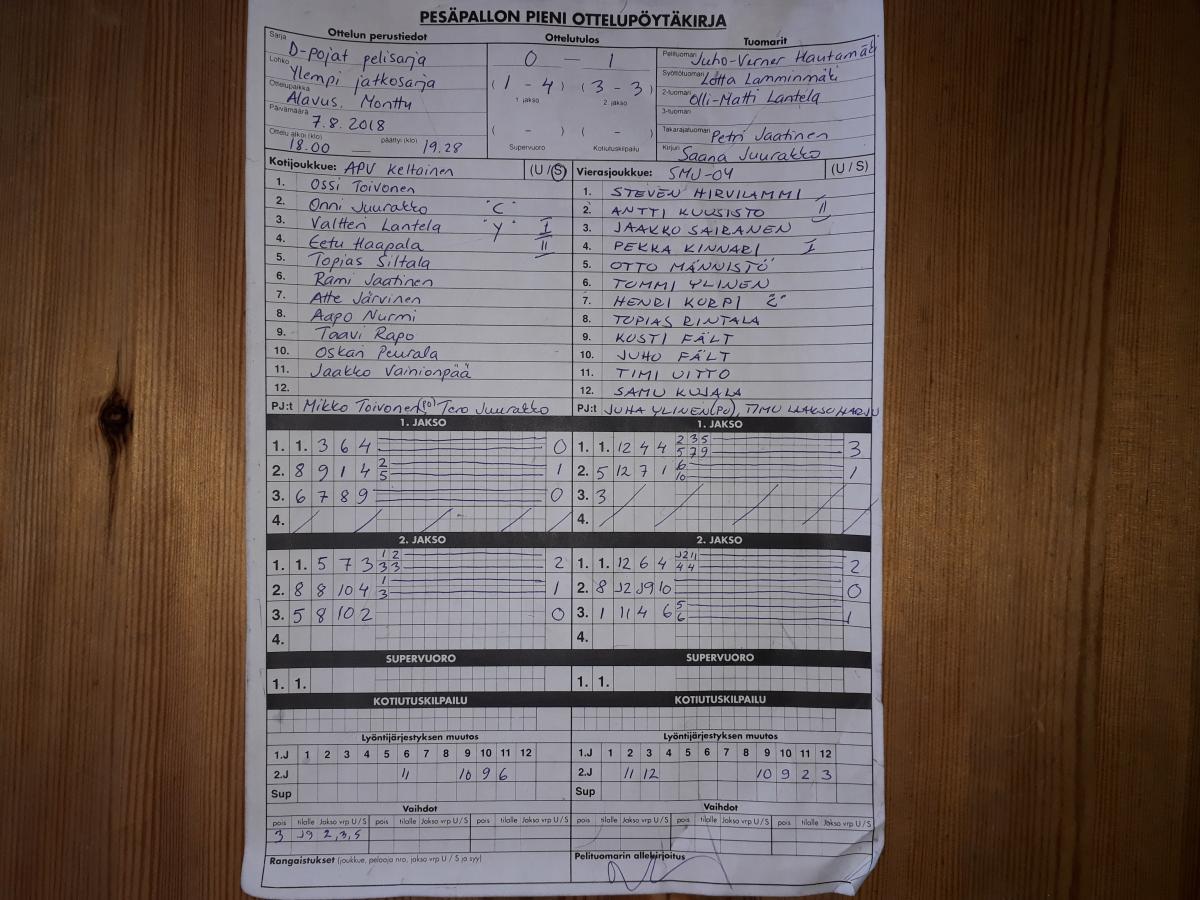 PESÄPALLON PIENI OTTELUPÖYTÄKIRJA
Ottelun perustiedot
Sarja D-pojat pelisarja
Lohko Ylempi jatkosarja
Ottelupaikka Alavus, Monttu
Päivämäärä 7.8.2018
Ottelu alkoi (klo) 18.00 — päättyi (klo) 19.28
Ottelutulos
0 — 1
(1 - 4) (3 - 3)
1. jakso 2. jakso
( - ) ( - )
Supervuoro Kotiutuskilpailu
Tuomarit
Pelituomari Juho-Verner Hautamäki
Syöttötuomari Lotta Lamminmäki
2-tuomari Olli-Matti Lantela
3-tuomari
Takarajatuomari Petri Jaatinen
Kirjuri Saana Juurakko
Kotijoukkue: APV Keltainen (U/S)
1. Ossi Toivonen
2. Onni Juurakko "C"
3. Valtteri Lantela "Y" I
4. Eetu Haapala II
5. Topias Siltala
6. Rami Jaatinen
7. Atte Järvinen
8. Aapo Nurmi
9. Taavi Rapo
10. Oskari Peurala
11. Jaakko Vainionpää
12.
PJ:t Mikko Toivonen (PO) Tero Juurakko
Vierasjoukkue: SMJ-04 (U/S)
1. STEVEN HIRVILAMMI
2. ANTTI KUUSISTO II
3. JAAKKO SAIRANEN
4. PEKKA KINNARI I
5. OTTO MÄNNISTÖ
6. TOMMI YLINEN
7. HENRI KORPI
8. TOPIAS RINTALA
9. KUSTI FÄLT
10. JUHO FÄLT
11. TIMI UITTO
12. SAMU KUJALA
PJ:t JUHA YLINEN (PO), TIMO LAAKSOHARJU
1. JAKSO
1. 1. 3 6 4 0
2. 8 9 1 4 2 5 1
3. 6 7 8 9 0
4.
1. JAKSO
1. 1. 12 4 4 2 3 5 5 7 9 3
2. 5 12 7 1 6 10 1
3. 3
4.
2. JAKSO
1. 1. 5 7 3 1 2 3 3 2
2. 8 8 10 4 1 3 1
3. 5 8 10 2 0
4.
2. JAKSO
1. 1. 12 6 4 12 11 4 4 2
2. 8 12 J9 10 0
3. 1 11 4 6 5 6 1
4.
SUPERVUORO
1. 1.
SUPERVUORO
1. 1.
KOTIUTUSKILPAILU
KOTIUTUSKILPAILU
Lyöntijärjestyksen muutos
1.J 1 2 3 4 5 6 7 8 9 10 11 12
2.J 11 10 9 6
Sup
Lyöntijärjestyksen muutos
1.J 1 2 3 4 5 6 7 8 9 10 11 12
2.J 11 12 10 9 2 3
Sup
Vaihdot
pois tilalle Jakso vrp U/S pois tilalle Jakso vrp U/S
3 J9 2,3,5
Vaihdot
pois tilalle Jakso vrp U/S pois tilalle Jakso vrp U/S
Rangaistukset (joukkue, pelaaja nro, jakso vrp U / S ja syy)
Pelituomarin allekirjoitus